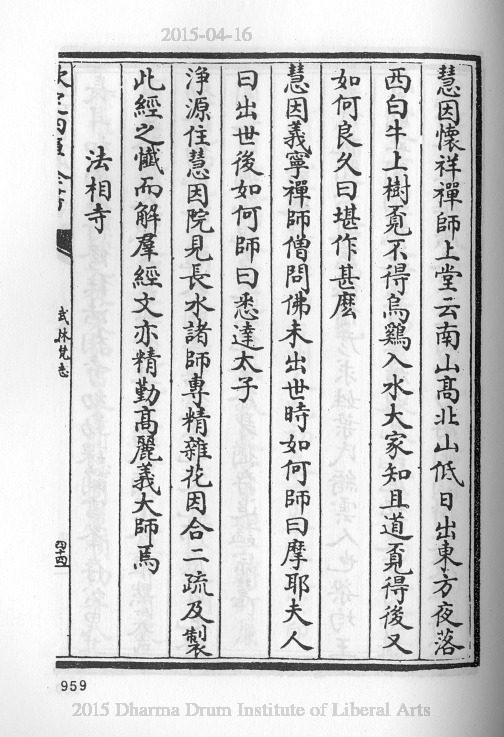 2015-04-16
慧因懷祥禪師上堂云南山髙北山低日出東方夜落
西白牛上樹覔不得烏鷄入水大家知且道覔得後又
如何良久曰堪作甚麽
慧因義寧禪師僧問佛未出世時如何師曰摩耶夫人
曰出世後如何師曰悉達太子
浄源住慧因院見長水諸師專精雜花因合二疏及製
此經之懴而解羣經文亦精勤髙麗義大師焉
法相寺
武林梵志
四十四
959
2015 Dharma Drum Institute of Liberal Arts